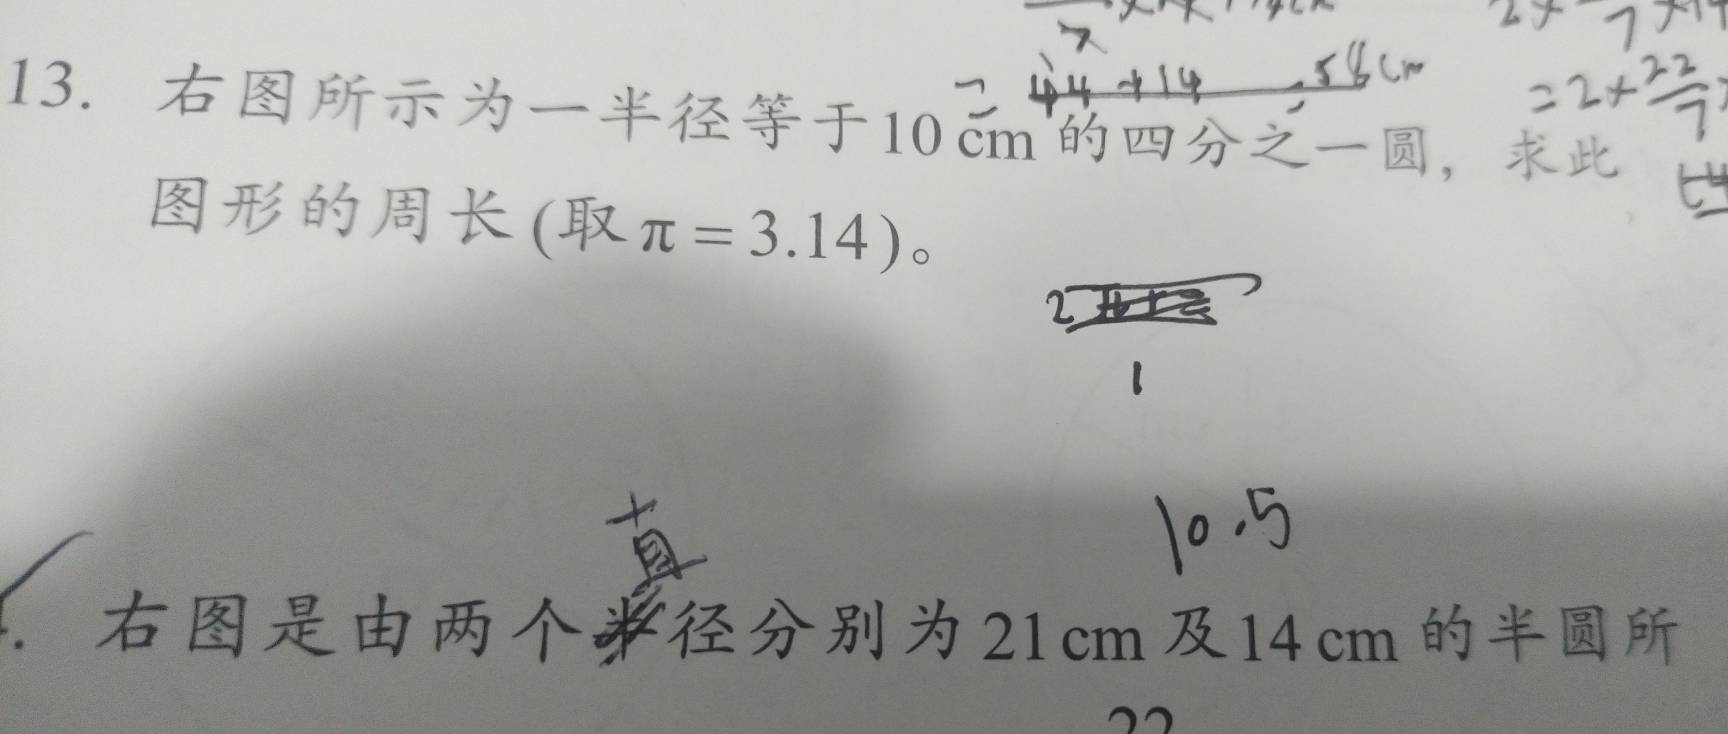 44+14 58cm
=2×22/7
13. 右图所示为一半径等于10 cm 的四分之一圆，求此
图形的周长(取π=3.14)。
2
1
10.5
直
右图是由两个半径分别为21cm及14cm的半圆所
22